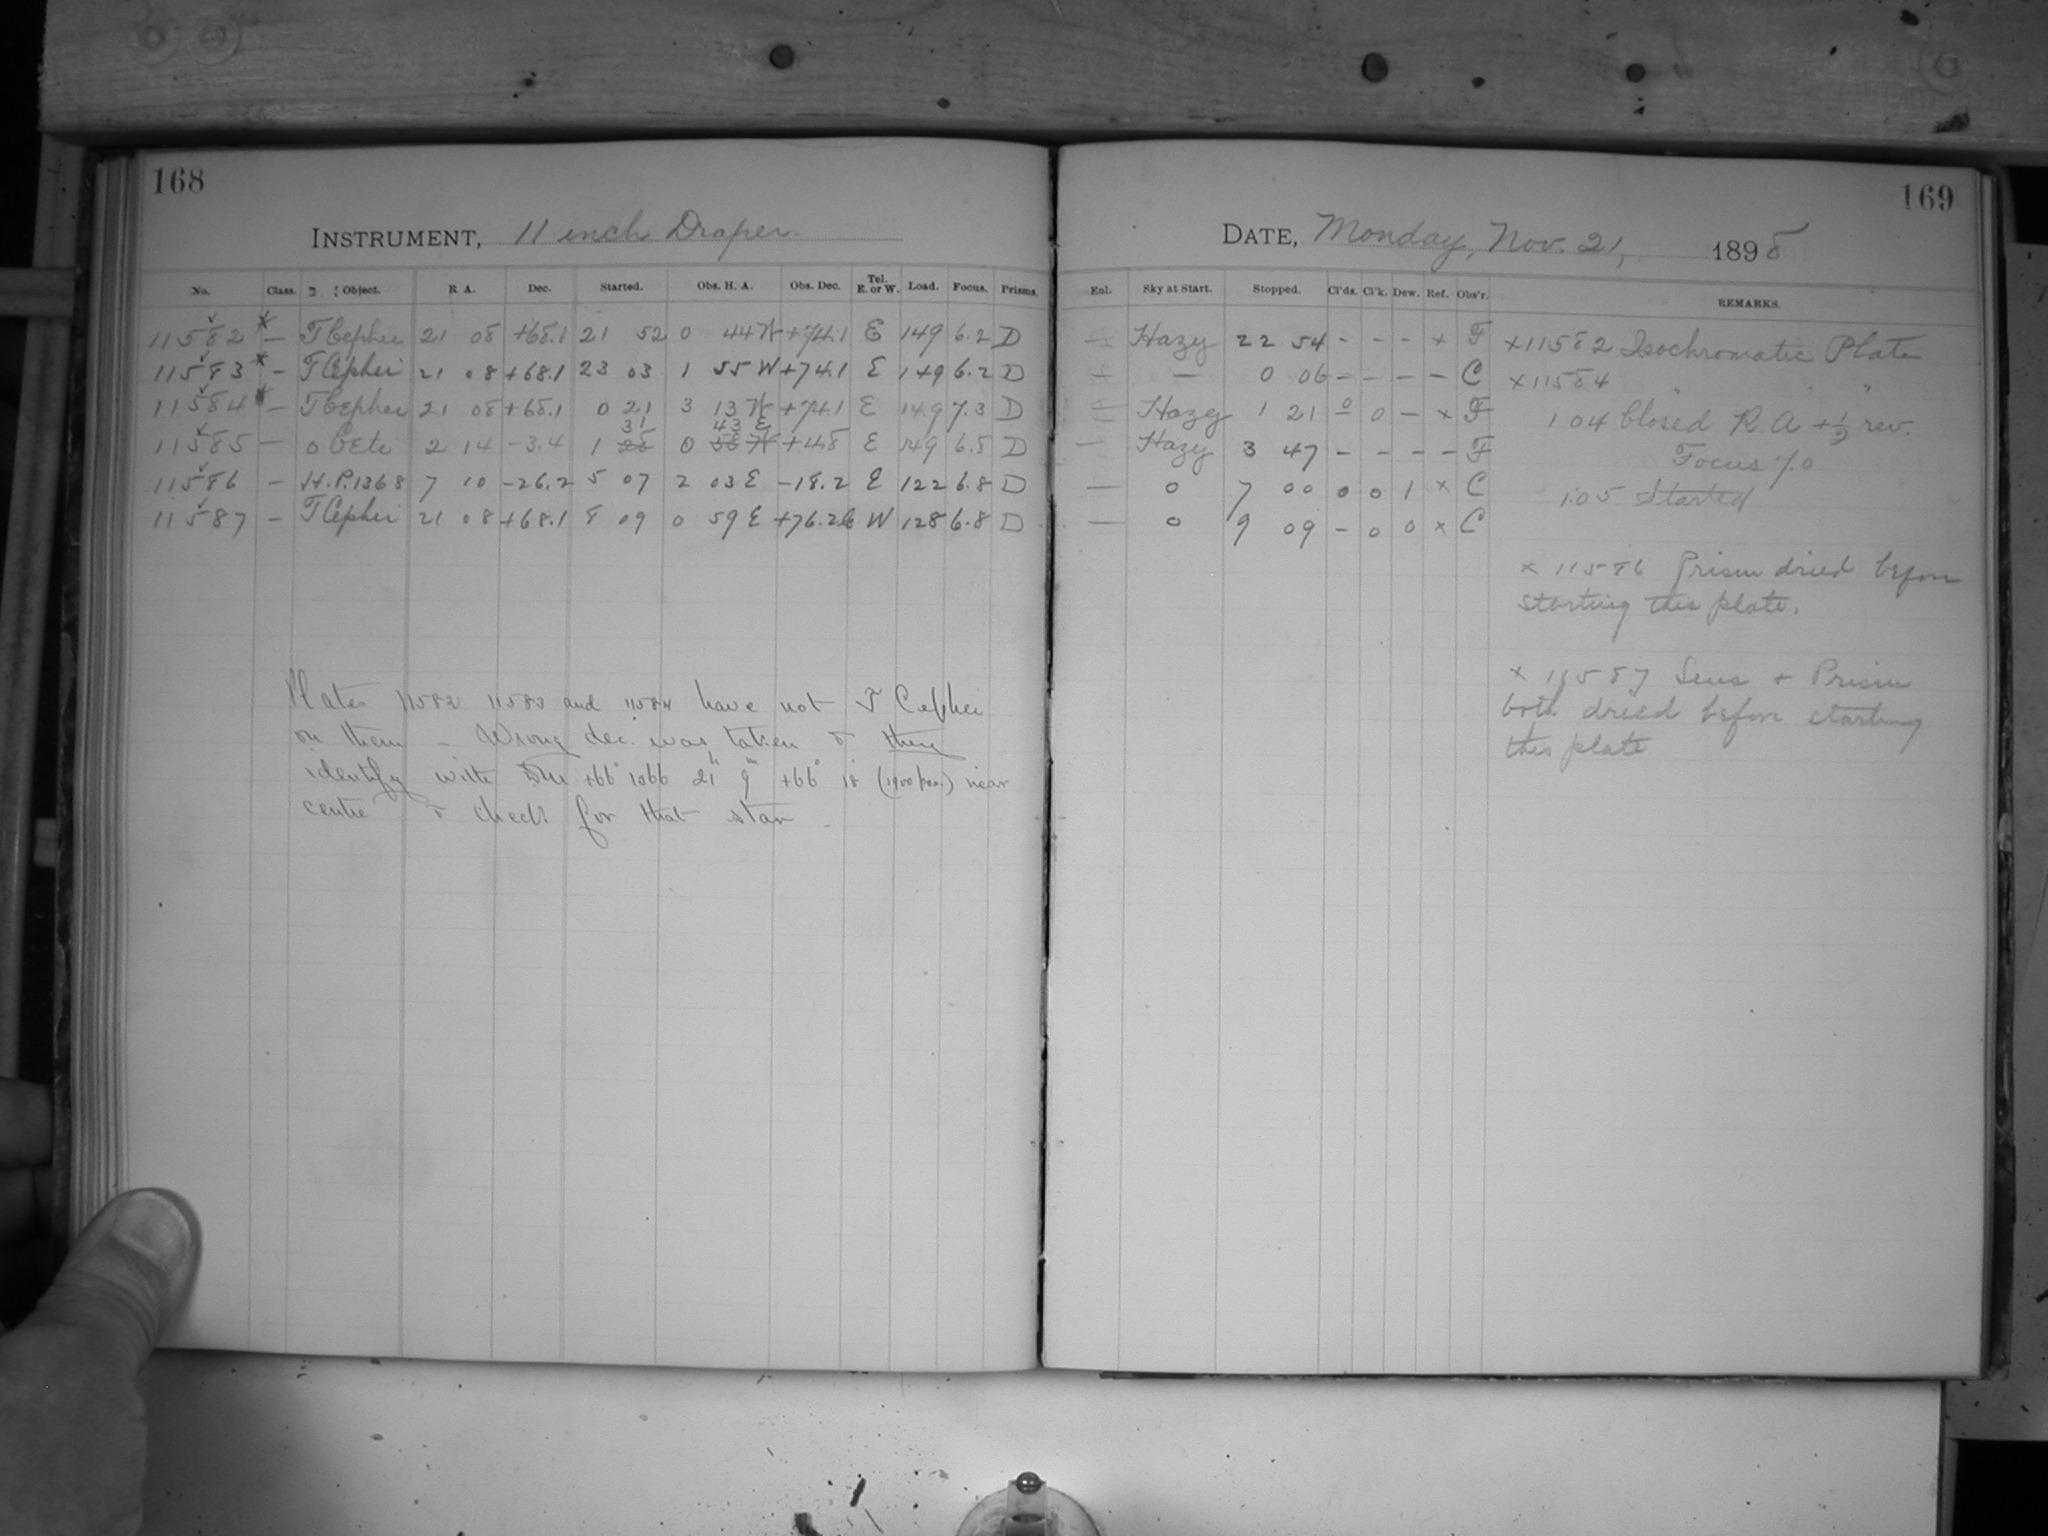 168
INSTRUMENT, 11 inch Draper.
No. Class. Object. R. A. Dec. Started. Obs. H. A. Obs. Dec. Tel. E. or W. Load. Focus. Prisms.
11582 * — T Cephei 21 08 +68.1 21 52 0 44 W +74.1 E 149 6.2 D
11583 * — T Cephei 21 08 +68.1 23 03 1 55 W +74.1 E 149 6.2 D
11584 * — T Cephei 21 08 +68.1 0 21 3 13 W +74.1 E 149 7.3 D
31 43 E
11585 — o Ceti 2 14 -3.4 1 0 +4.8 E 149 6.5 D
11586 — H.P. 1368 7 10 -26.2 5 07 2 03 E -18.2 E 122 6.8 D
11587 — T Cephei 21 08 +68.1 8 09 0 59 E +76.2 W 128 6.8 D
Plates 11582 11583 and 11584 have not T Cephei
on them — Wrong dec. was taken & they
identify with +66° 1366 21h 9m +66° 18 (1900 pos.) near
centre & check for that star —
169
DATE, Monday, Nov. 21, 1898
Enl. Sky at Start. Stopped. Cl'ds. Cl'k. Dew. Ref. Obs'r. REMARKS.
— Hazy 22 54 - - - x F x 11582 Isochromatic Plate
— — 0 06 - - - - C x 11584 " " "
— Hazy 1 21 0 0 - x F 1 04 Closed R.A +½ rev.
— Hazy 3 47 - - - - F Focus 7.0
— 0 7 00 0 0 1 x C 1.05 Started
— 0 9 09 - 0 0 x C
x 11586 Prism dried before
starting this plate.
x 11587 Lens + Prism
both dried before starting
this plate